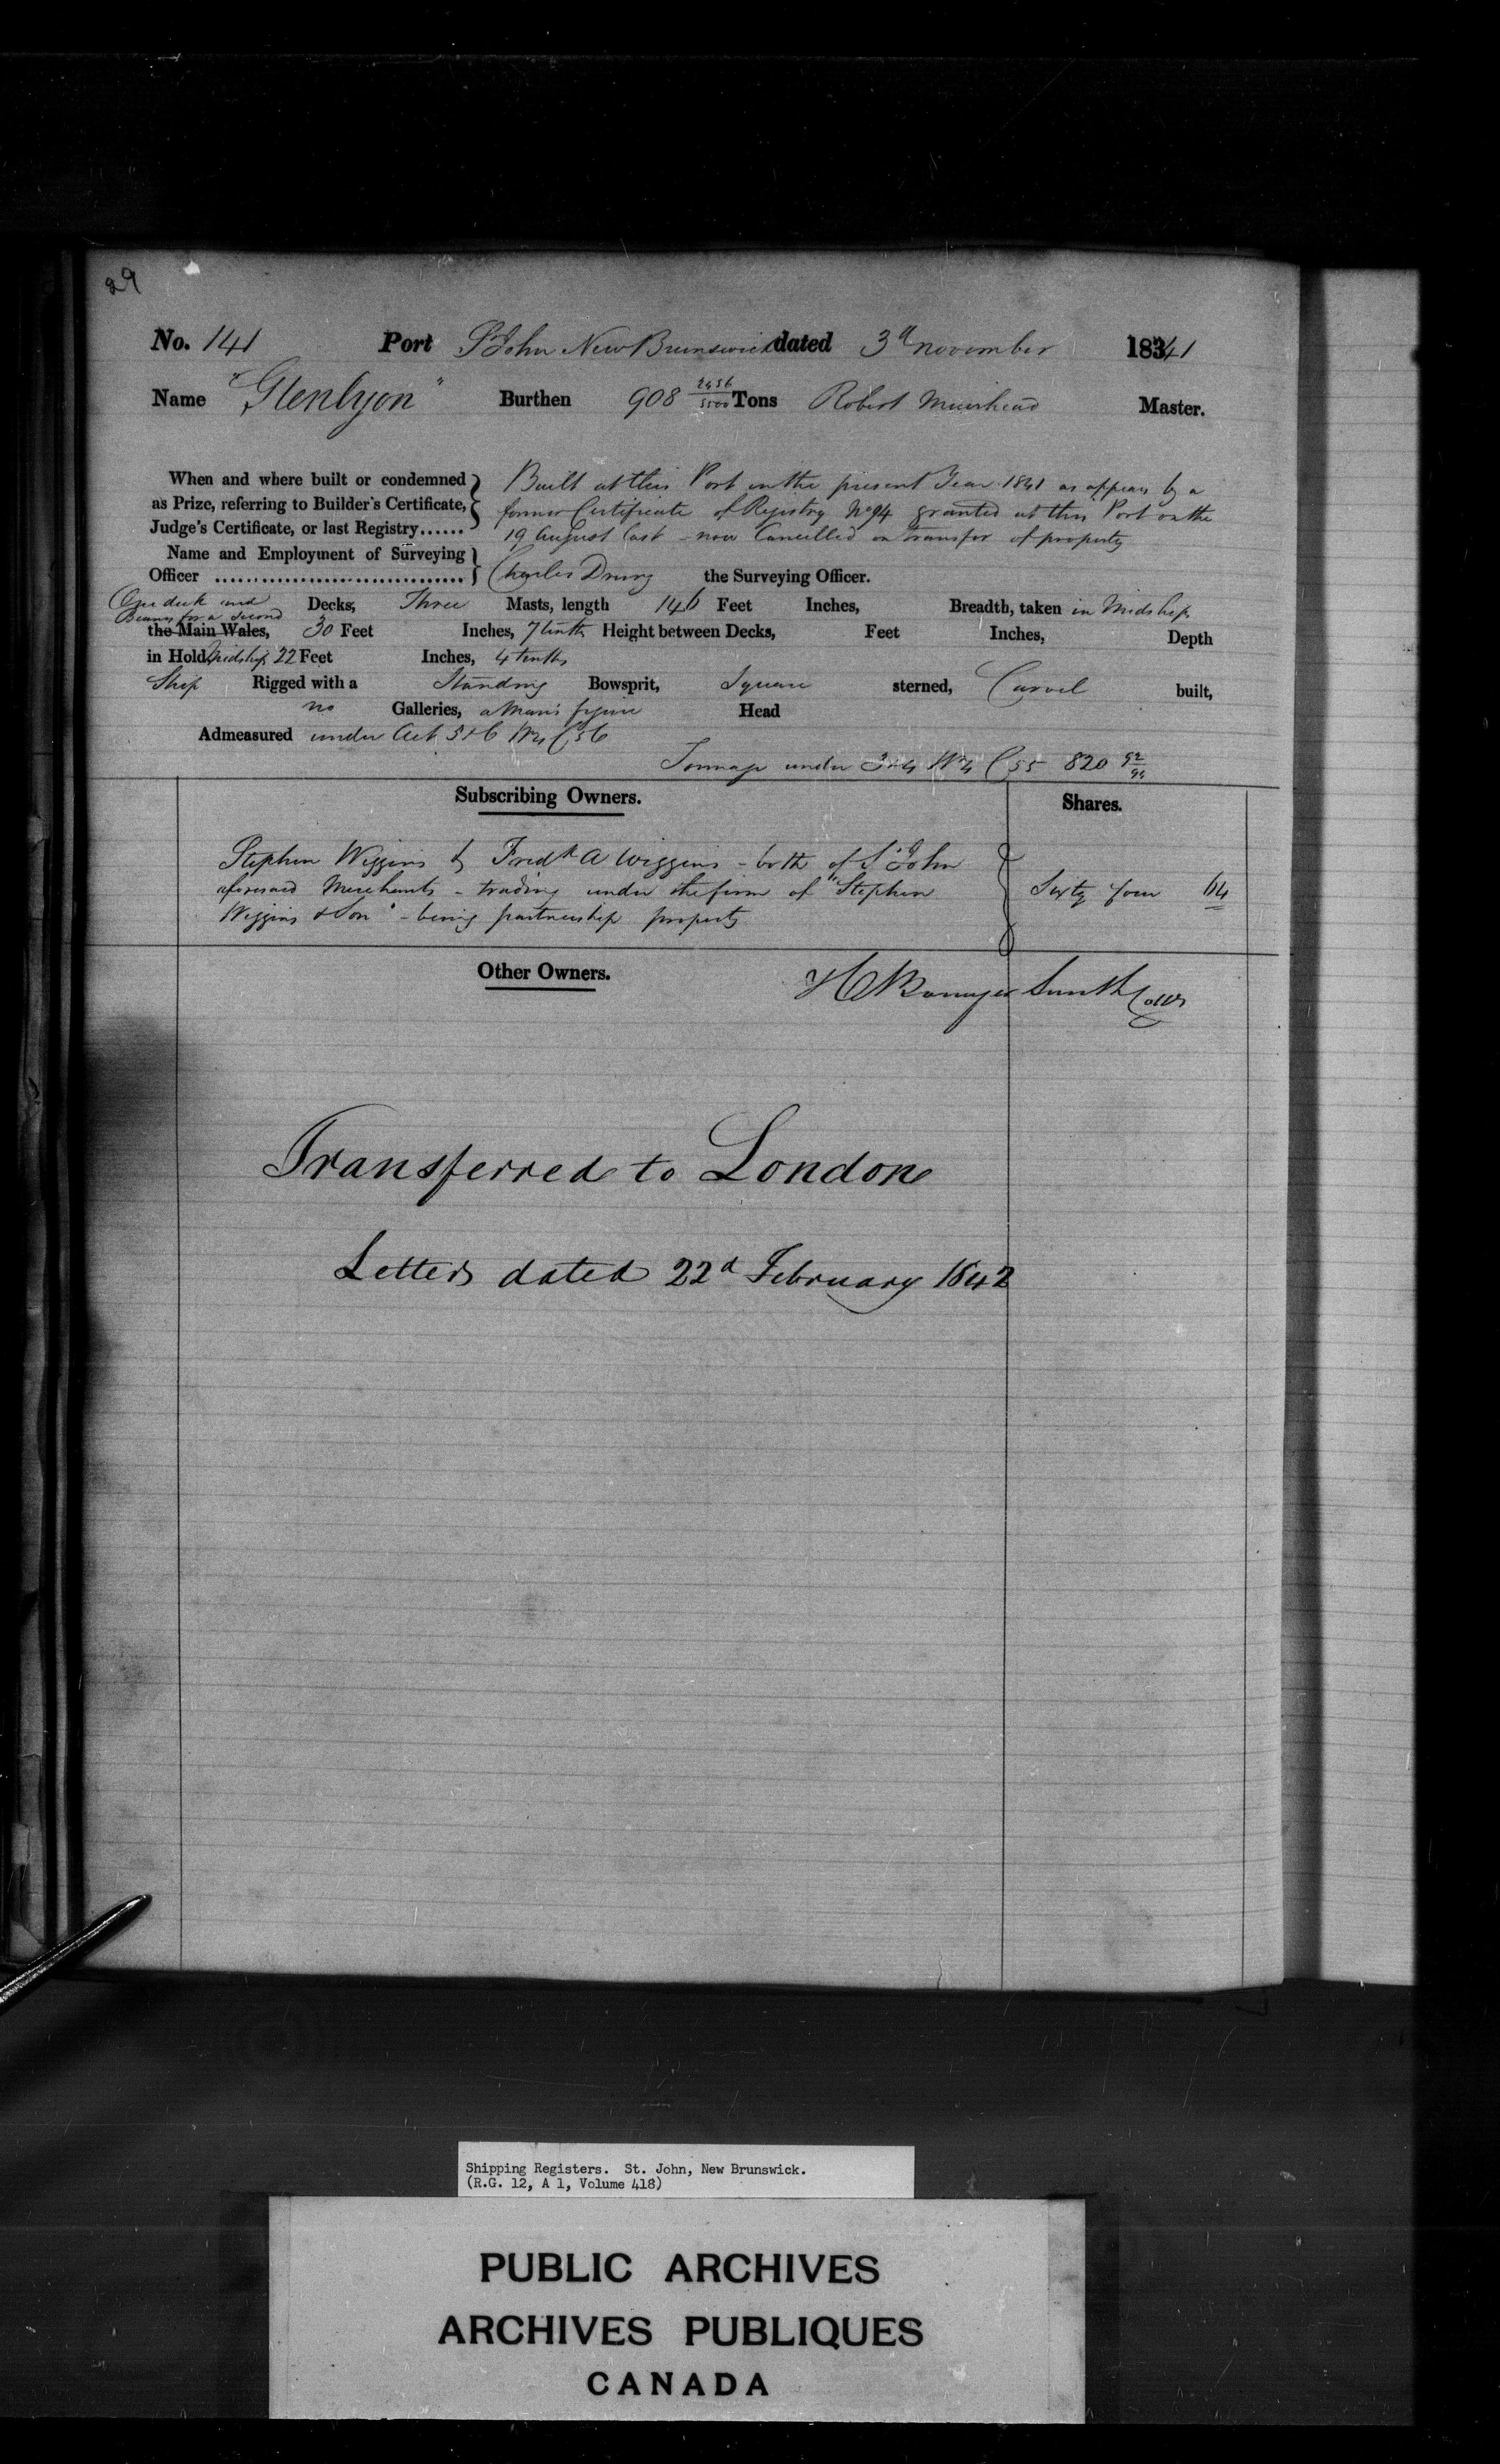 29
No. 141 Port St John New Brunswick dated 3d November 18341
Name "Glenlyon" Burthen 908 2456/3500 Tons Robert Muirhead Master.
When and where built or condemned as Prize, referring to Builder's Certificate, Judge's Certificate, or last Registry......
Built at this Port in the present Year 1841 as appears by a
former Certificate of Registry No 94 granted at this Port on the
19 August last - now Cancelled on transfer of property
Name and Employment of Surveying
Officer ................................ Charles Drury the Surveying Officer.
One deck and
Beams for a Second
Decks, Three Masts, length 146 Feet Inches, Breadth, taken in Midships
the Main Wales, 30 Feet Inches, 7 tenths Height between Decks, Feet Inches, Depth
in Hold Midships 22 Feet Inches, 4 tenths
Ship Rigged with a Standing Bowsprit, Square sterned, Carvel built,
no Galleries, a Man's figure Head
Admeasured under Act 5 & 6 W 4 C 56
Tonnage under 3 & 4 W 4 C 55 820 92/94
Subscribing Owners. Shares.
Stephen Wiggins & Fredk A Wiggins - both of St John
aforesaid Merchants - trading under the firm of "Stephen
Wiggins & Son" - being partnership property
Sixty four 64
Other Owners. H Bowyer Smith Collr
Transferred to London
Letter dated 22d February 1842
Shipping Registers. St. John, New Brunswick.
(R.G. 12, A 1, Volume 418)
PUBLIC ARCHIVES
ARCHIVES PUBLIQUES
CANADA